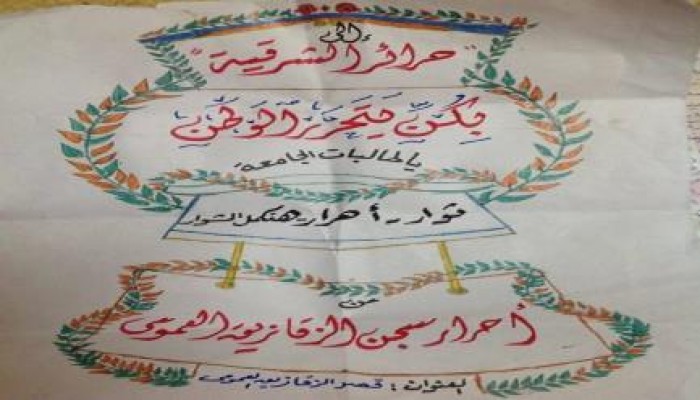 إلى
"حرائر الشرقية"
بكن يتحرر الوطن
يا لطالبات الجامعة
ثوار - أحرار - هنكمل المشوار
من
أحرار سجن الزقازيق العمومى
العنوان: قصر الزقازيق العمومى